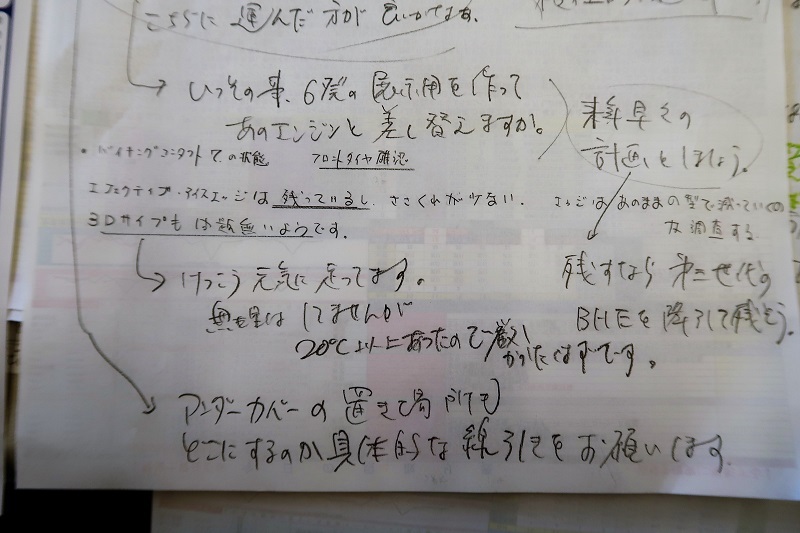 こちらに運んだ方が良いかなぁ。
いっその事、6発の展示用を作って
あのエンジンと差し替えますか。
来年早々の
計画としましょう。
・バイキングコンタクト7の状態 フロントタイヤ確認
エフェクティブ・アイスエッジは残っているし、ささくれが少ない。
エッジはあのままの型で減っていくの
か調査する
3Dサイプも問題無いようです。
けっこう元気に走ってます。
無理はしてませんが
20℃以上あったので厳し
かったはずです。
残すなら第三世代の
BHEを降ろして残そう。
アンダーカバーの置き場所も
どこにするのか具体的な線引きをお願いします。